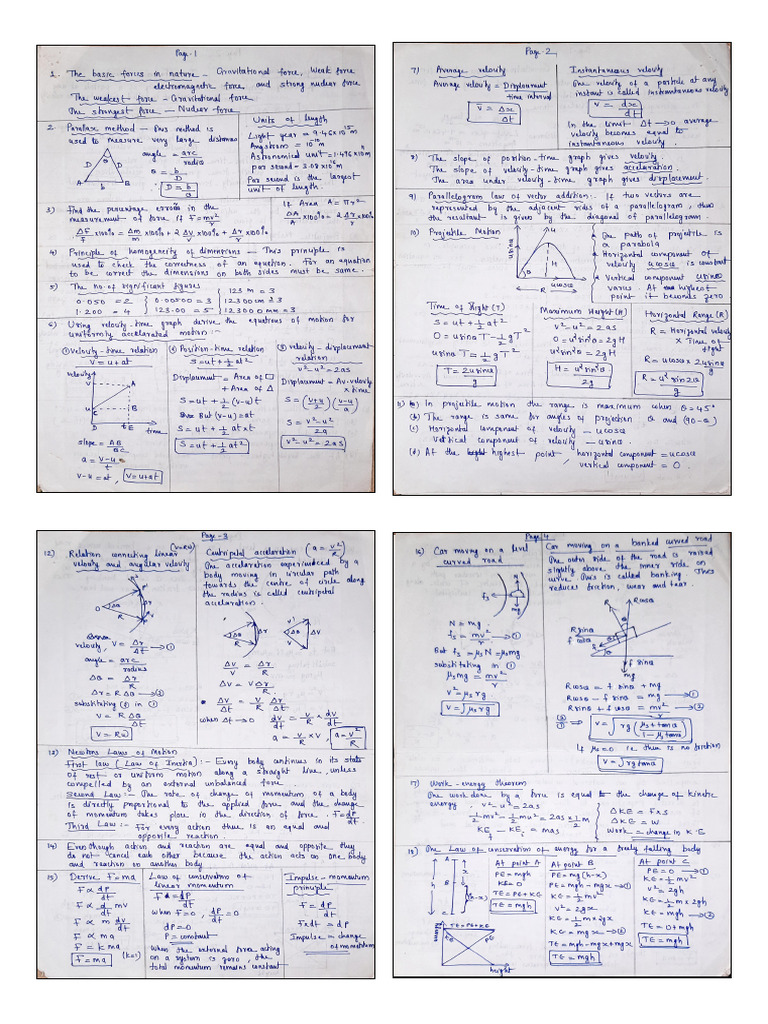 Page-1
1. The basic forces in nature - Gravitational force, weak force
electromagnetic force, and strong nuclear force
The weakest force - Gravitational force
The strongest force - Nuclear force
2. Parallax method - This method is
used to measure very large distances
angle = arc/radius
θ = b/D
D = b/θ
A B D D θ b
Units of length
Light year = 9.46x10¹⁵m
Angstrom = 10⁻¹⁰m
Astronomical unit = 1.496x10¹¹m
par second = 3.08x10¹⁶m
Par second is the largest
unit of length.
3) Find the percentage errors in the
measurement of force if F = mv²/r
ΔF/F x100% = Δm/m x100% + 2 Δv/v x100% + Δr/r x100%
If Area A = πr²
ΔA/A x100% = 2 Δr/r x100%
4) Principle of homogeneity of dimensions - This principle is
used to check the correctness of an equation. For an equation
to be correct the dimensions on both sides must be same.
5) The no. of significant figures
0.050 = 2
1.200 = 4
0.00500 = 3
123.00 = 5
123 m = 3
12300 cm = 3
123000 mm = 3
6) Using velocity-time graph derive the equations of motion for
uniformly accelerated motion:-
① Velocity-time relation
v = u+at
velocity
v A
u C B
D t E time
slope = AB/BC
a = v-u/t
v-u = at, v = u+at
② Position-time relation
S = ut + ½at²
Displacement = Area of □
+ Area of Δ
S = ut + ½(v-u)t
But (v-u) = at
S = ut + ½ at x t
S = ut + ½ at²
③ velocity-displacement
relation
v²-u² = 2as
Displacement = Av.velocity
x time
S = (v+u/2)(v-u/a)
S = v²-u²/2a
v²-u² = 2as
Page-2
7) Average velocity
Average velocity = Displacement/time interval
v̄ = Δx/Δt
Instantaneous velocity
The velocity of a particle at any
instant is called instantaneous velocity
v = dx/dt
In the limit Δt→0 average
velocity becomes equal to
instantaneous velocity.
8) The slope of position-time graph gives velocity.
The slope of velocity-time graph gives acceleration.
The area under velocity-time graph gives displacement.
9) Parallelogram law of vector addition: If two vectors are
represented by the adjacent sides of a parallelogram, then
the resultant is given by the diagonal of parallelogram.
10) Projectile Motion
usinα u H α ucosα R
The path of projectile is
a parabola
Horizontal component of
velocity ucosα is constant
Vertical component usinα
varies. At highest
point it becomes zero
Time of flight (T)
S = ut + ½at²
0 = usinα T - ½gT²
usinα T = ½gT²
T = 2usinα/g
Maximum Height (H)
v²-u² = 2as
0-u²sin²α = -2gH
u²sin²α = 2gH
H = u²sin²α/2g
Horizontal Range (R)
R = Horizontal velocity
x Time of flight
R = ucosα x 2usinα/g
R = u²sin2α/g
11) (a) In projectile motion the range is maximum when θ = 45°
(b) The range is same for angles of projection θ and (90-θ)
(c) Horizontal component of velocity - ucosα
Vertical component of velocity - usinα
(d) At the highest point, horizontal component = ucosα
vertical component = 0.
Page-3
12) Relation connecting linear (v=Rω)
velocity and angular velocity
velocity, v = Δr/Δt →①
angle = arc/radius
Δθ = Δr/R
Δr = RΔθ →②
substituting ② in ①
v = RΔθ/Δt
v = Rω
Centripetal acceleration (a = v²/R)
The acceleration experienced by a
body moving in circular path
towards the centre of circle along
the radius is called centripetal
acceleration.
Δv/v = Δr/R
Δv = vΔr/R
Δv/Δt = v/R Δr/Δt
when Δt→0 dv/dt = v/R x dr/dt
a = v/R x v, a = v²/R
13) Newtons Laws of Motion
First law (Law of Inertia):- Every body continues in its state
of rest or uniform motion along a straight line, unless
compelled by an external unbalanced force
Second Law:- The rate of change of momentum of a body
is directly proportional to the applied force and the change
of momentum takes place in the direction of force. F = dp/dt
Third Law:- For every action there is an equal and
opposite reaction.
14) Eventhough action and reaction are equal and opposite they
do not cancel each other because the action acts on one body
and reaction on another body
15) Derive F = ma
F α dp/dt
F α d/dt mv
F α m dv/dt
F α ma
F = k ma
F = ma (k=1)
Law of conservation of
linear momentum
F = dp/dt
When F=0, dp/dt = 0
dP = 0
P = constant
When the external force acting
on a system is zero, the
total momentum remains constant
Impulse - momentum
principle
F = dP/dt
Fxdt = dP
Impulse = change
of momentum
Page 4
16) Car moving on a level
curved road
N = mg
fs = mv²/r →①
But fs = μsN = μsmg
substituting in ①
μsmg = mv²/r
v² = μsrg
v = √μsrg
Car moving on a banked curved road
The outer side of the road is raised
slightly above the inner side on
curve. This is called banking. This
reduces friction, wear and tear.
R Rcosθ
Rsinθ
f cosθ
f f sinθ
mg
Rcosθ = f sinθ + mg
Rcosθ - f sinθ = mg →①
Rsinθ + f cosθ = mv²/r →②
②/① ⇒ v = √rg(μs+tanθ/1-μstanθ)
If μs=0 i.e. there is no friction
v = √rgtanθ
17) Work-energy theorem
The work done by a force is equal to the change of kinetic
energy.
v²-u² = 2as
½mv² - ½mu² = 2as x ½m
KEf - KEi = mas
ΔKE = Fxs
ΔKE = W
Work = change in K.E
18) The Law of conservation of energy for a freely falling body
A x B h (h-x) C
At point A
PE = mgh
KE = 0
TE = PE+KE
TE = mgh
At point B
PE = mg(h-x)
PE = mgh-mgx →①
KE = ½mv²
v² = 2gx
KE = ½m x 2gx
KE = mgx →②
TE = mgh-mgx+mgx
TE = mgh
At point C
PE = 0 →①
KE = ½mv²
v² = 2gh
KE = ½m x 2gh
KE = mgh →②
TE = 0+mgh
TE = mgh
TE = PE+KE
KE PE
height